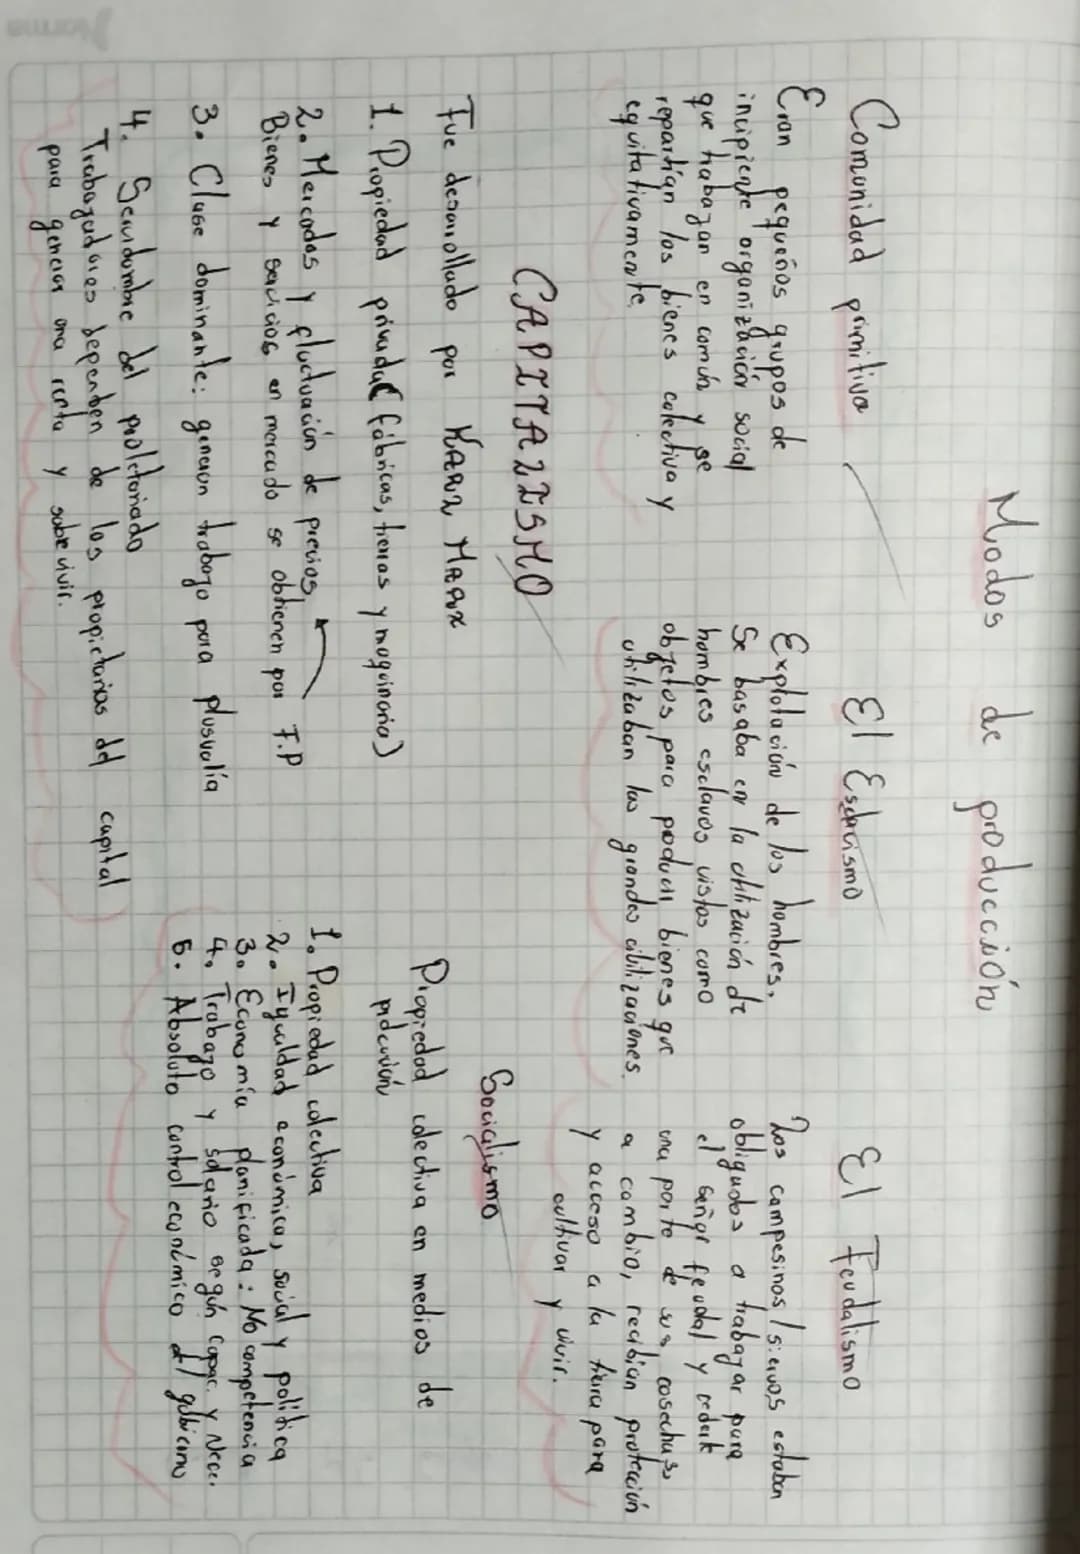 Norma
Modos de producción
Comunidad primitiva
Eran pequeños grupos de
incipiente organización social
que trabajan en común y se
repartían los bienes colectiva y
equitativamente.
El Esclavismo
Explotación de los hombres.
Se basaba en la utilización de
hombres esclavos vistos como
objetos para producir bienes que
utilizaban las grandes cibilizaciones.
El Feudalismo
Los campesinos / siervos estaban
obligados a trabajar para
el señor feudal y cederle
una parte de sus cosechas
a cambio, recibían protección
y acceso a la tierra para
cultivar y vivir.
CAPITALISMO
Fue desarrollado por KARL MARX
1. Propiedad privada (fábricas, tierras y maquinaria)
2. Mercados y fluctuación de precios
Bienes y servicios en mercado se obtienen por F.P
3. Clase dominante: generan trabajo para plusvalía
4. Servidumbre del proletariado
Trabajadores dependen de los propietarios del capital
para generar una renta y sobrevivir.
Socialismo
Propiedad colectiva en medios de
1. Propiedad colectiva
2. Igualdad económica, social y política
3. Economía planificada: No competencia
4. Trabajo y salario según Capac. y Nece.
5. Absoluto control económico del gobierno